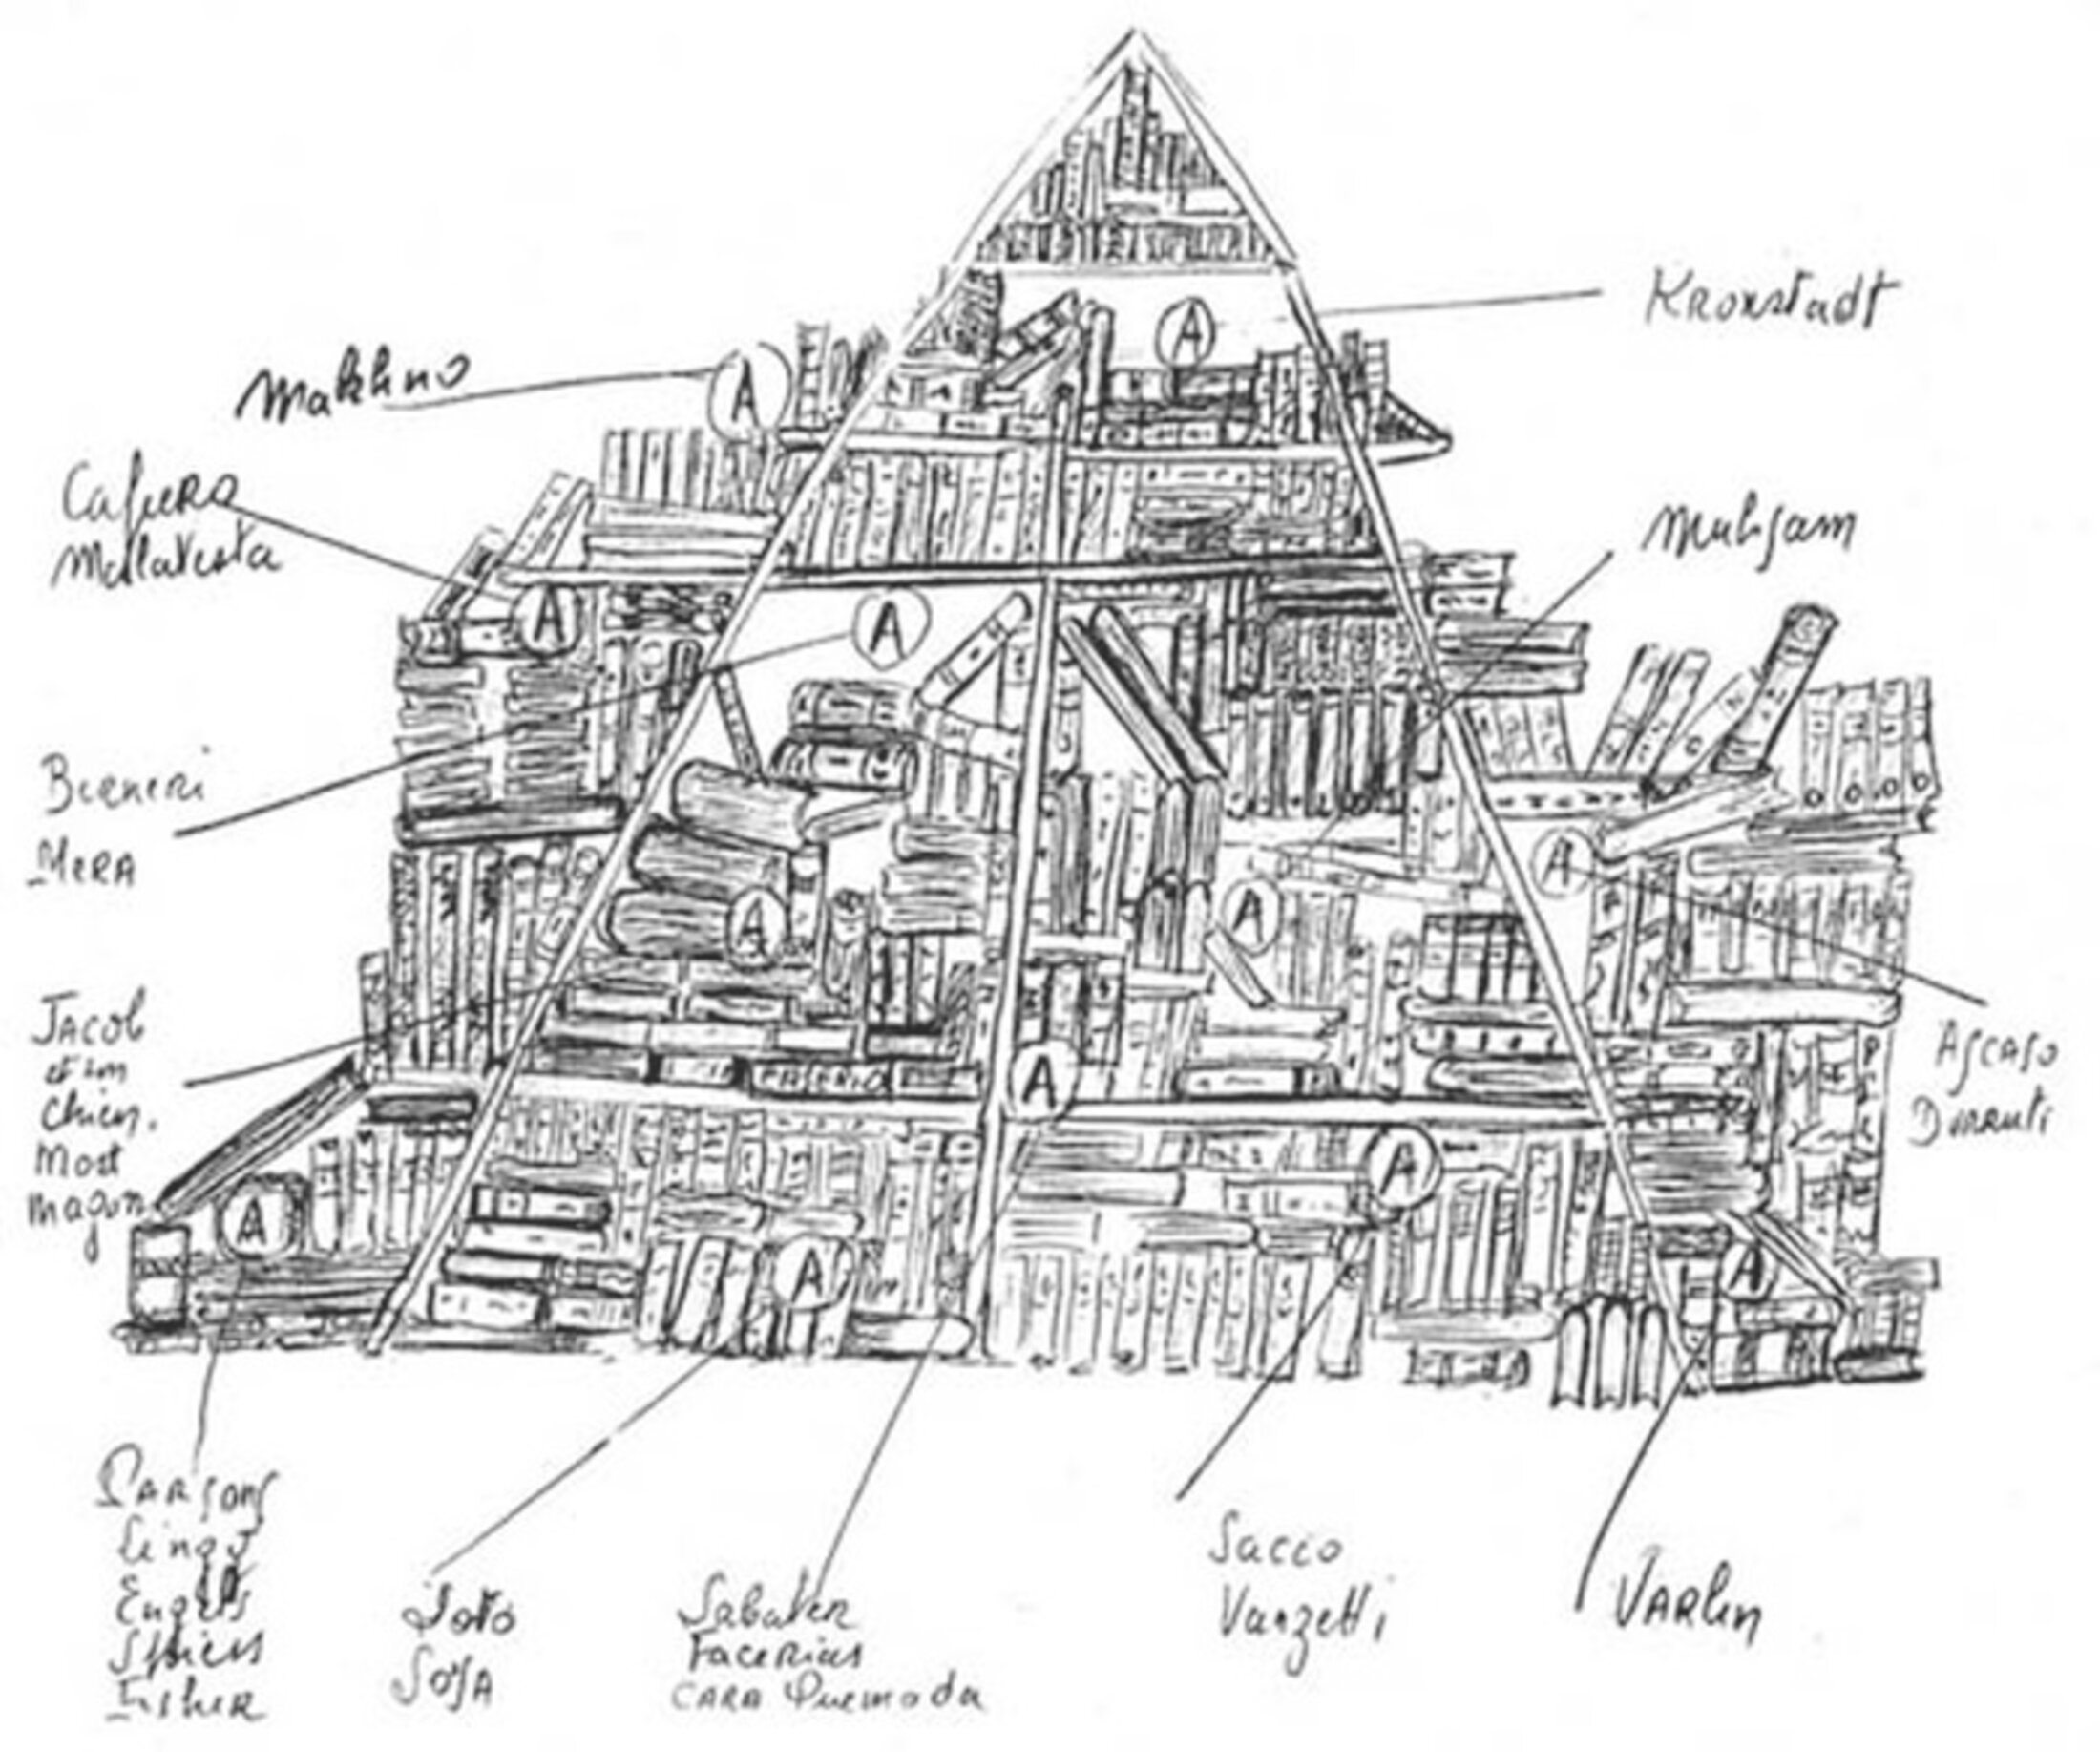 Kronstadt
Makhno
Cafiero
Mallatesta
Muhsam
Berneri
Mera
Jacob
et son
chien.
Most
Magon
Ascaso
Durruti
Parsons
Lingg
Engels
Spies
Fisher
Soto
Sosa
Sabater
Facerias
CARA Quemada
Sacco
Vanzetti
Varlin
A
A
A
A
A
A
A
A
A
A
A
A